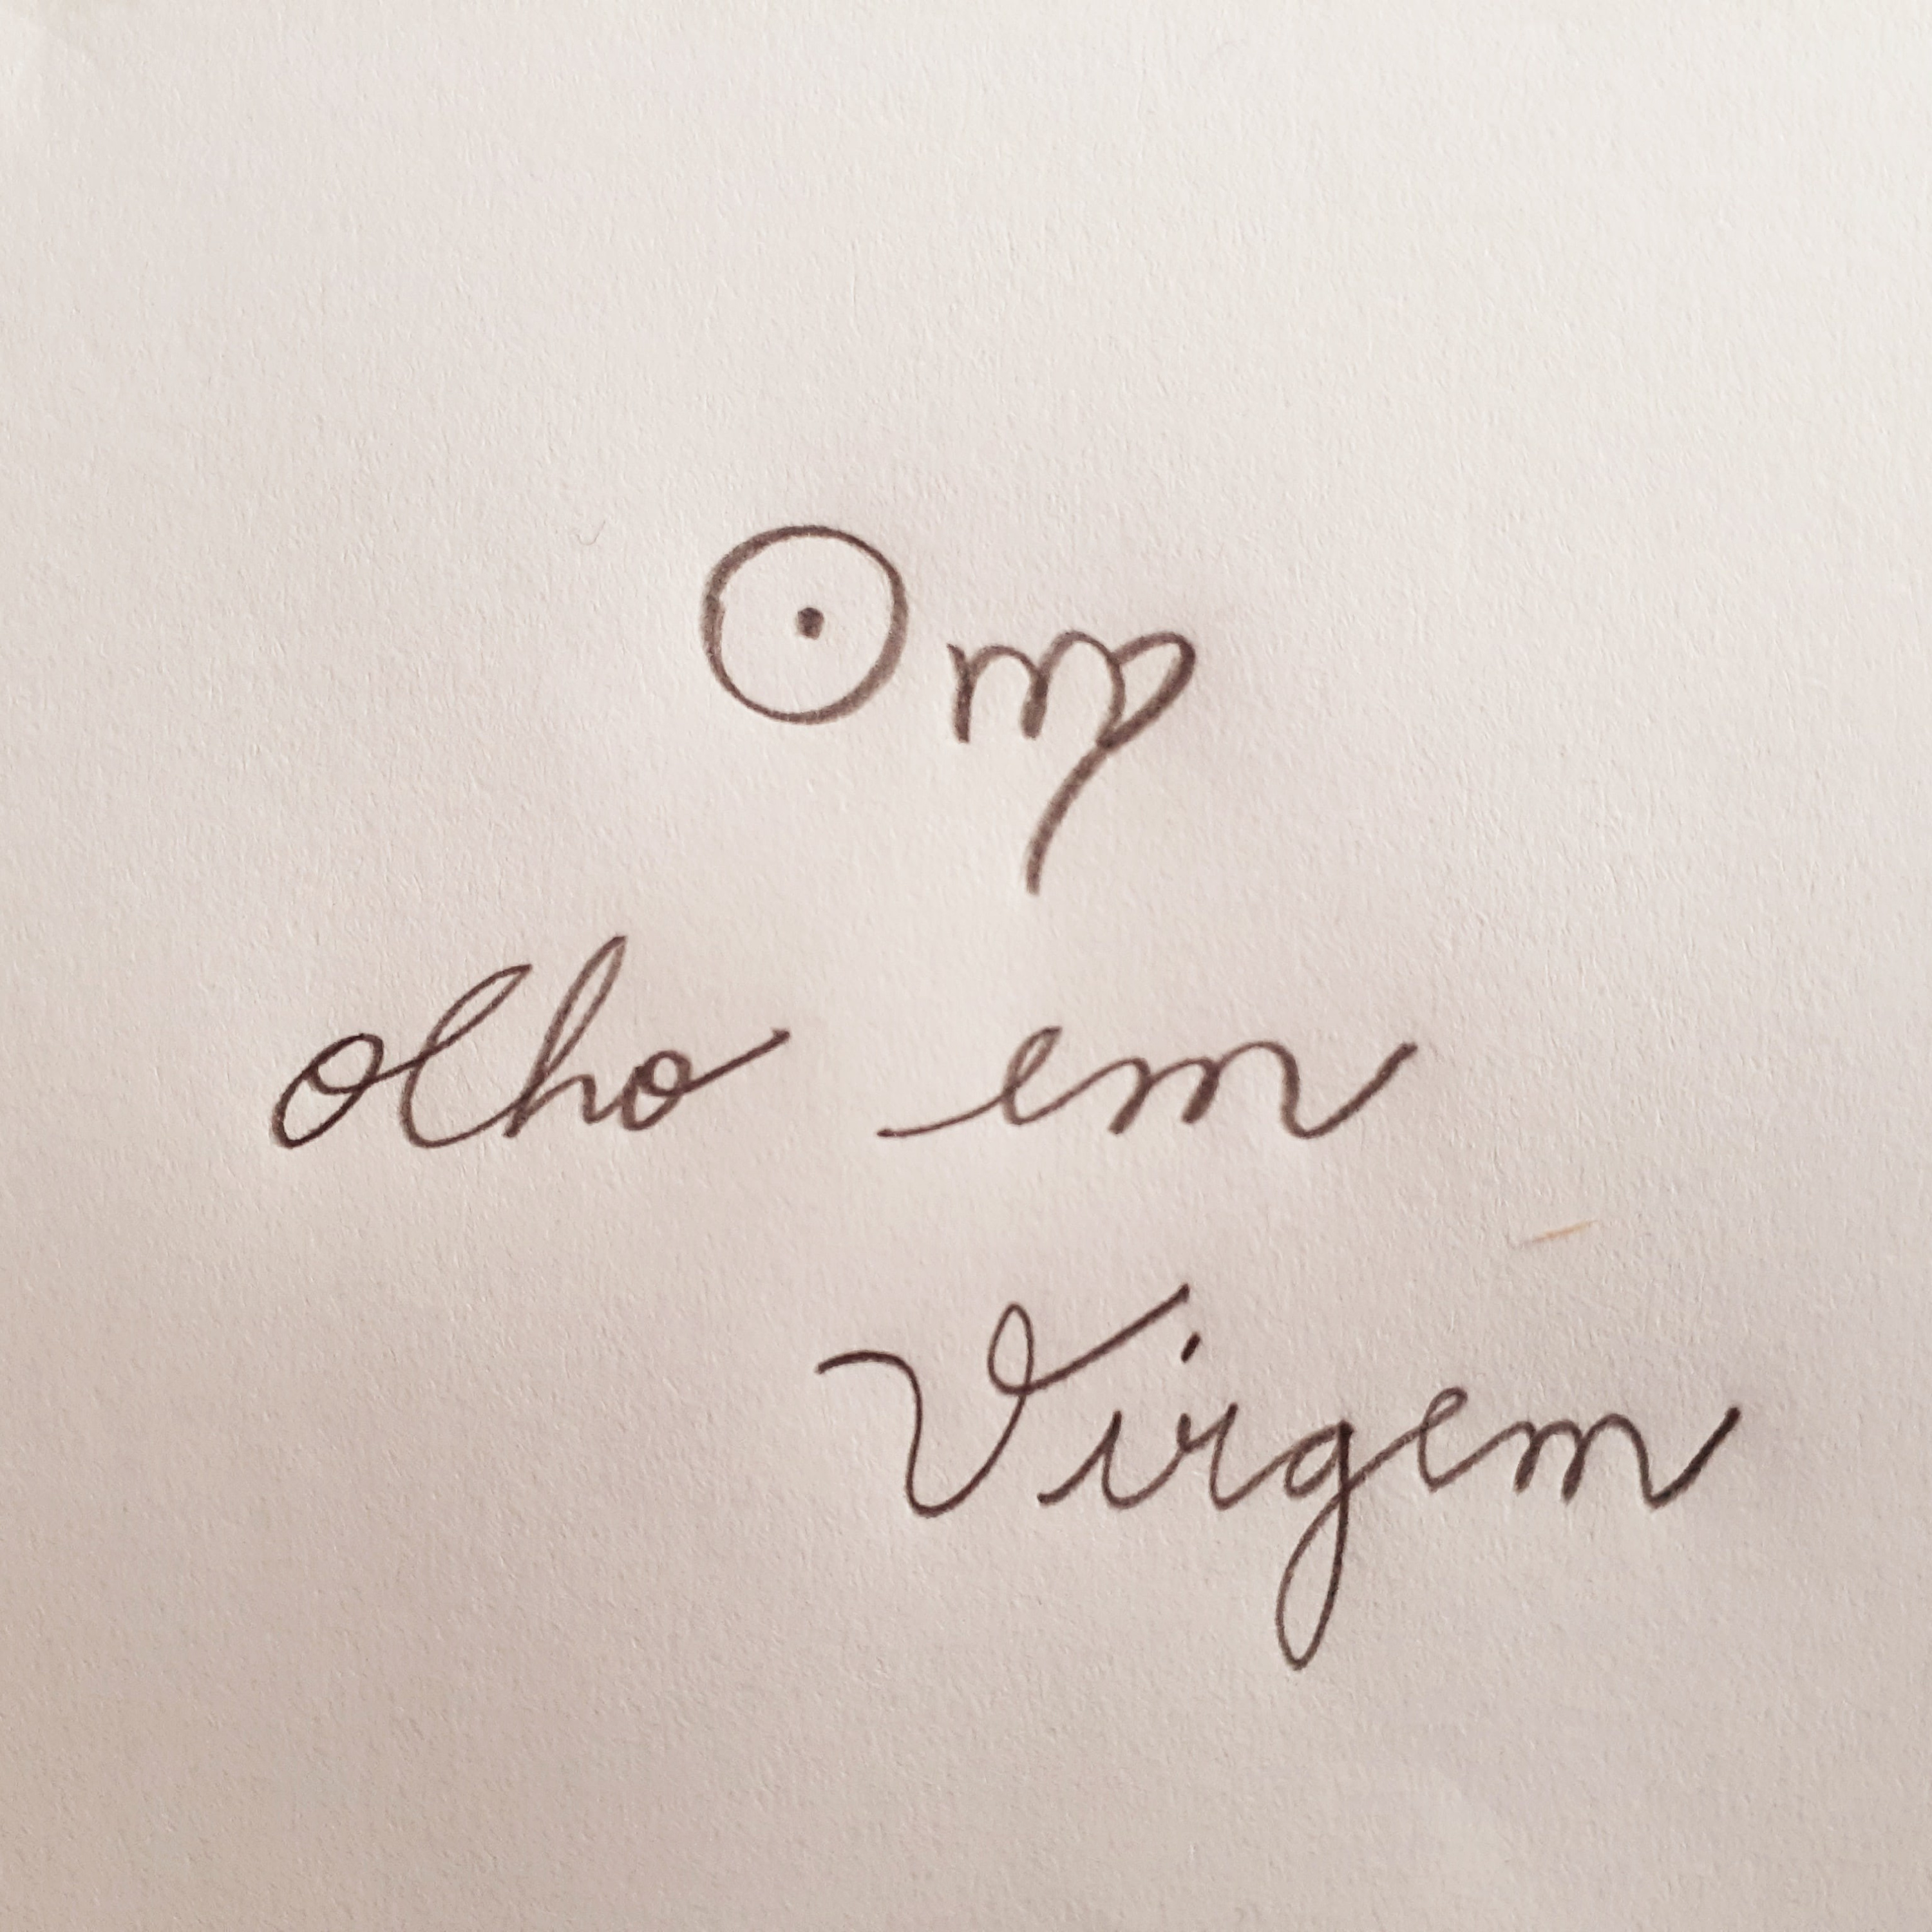 ☉♍
olho em
Virgem